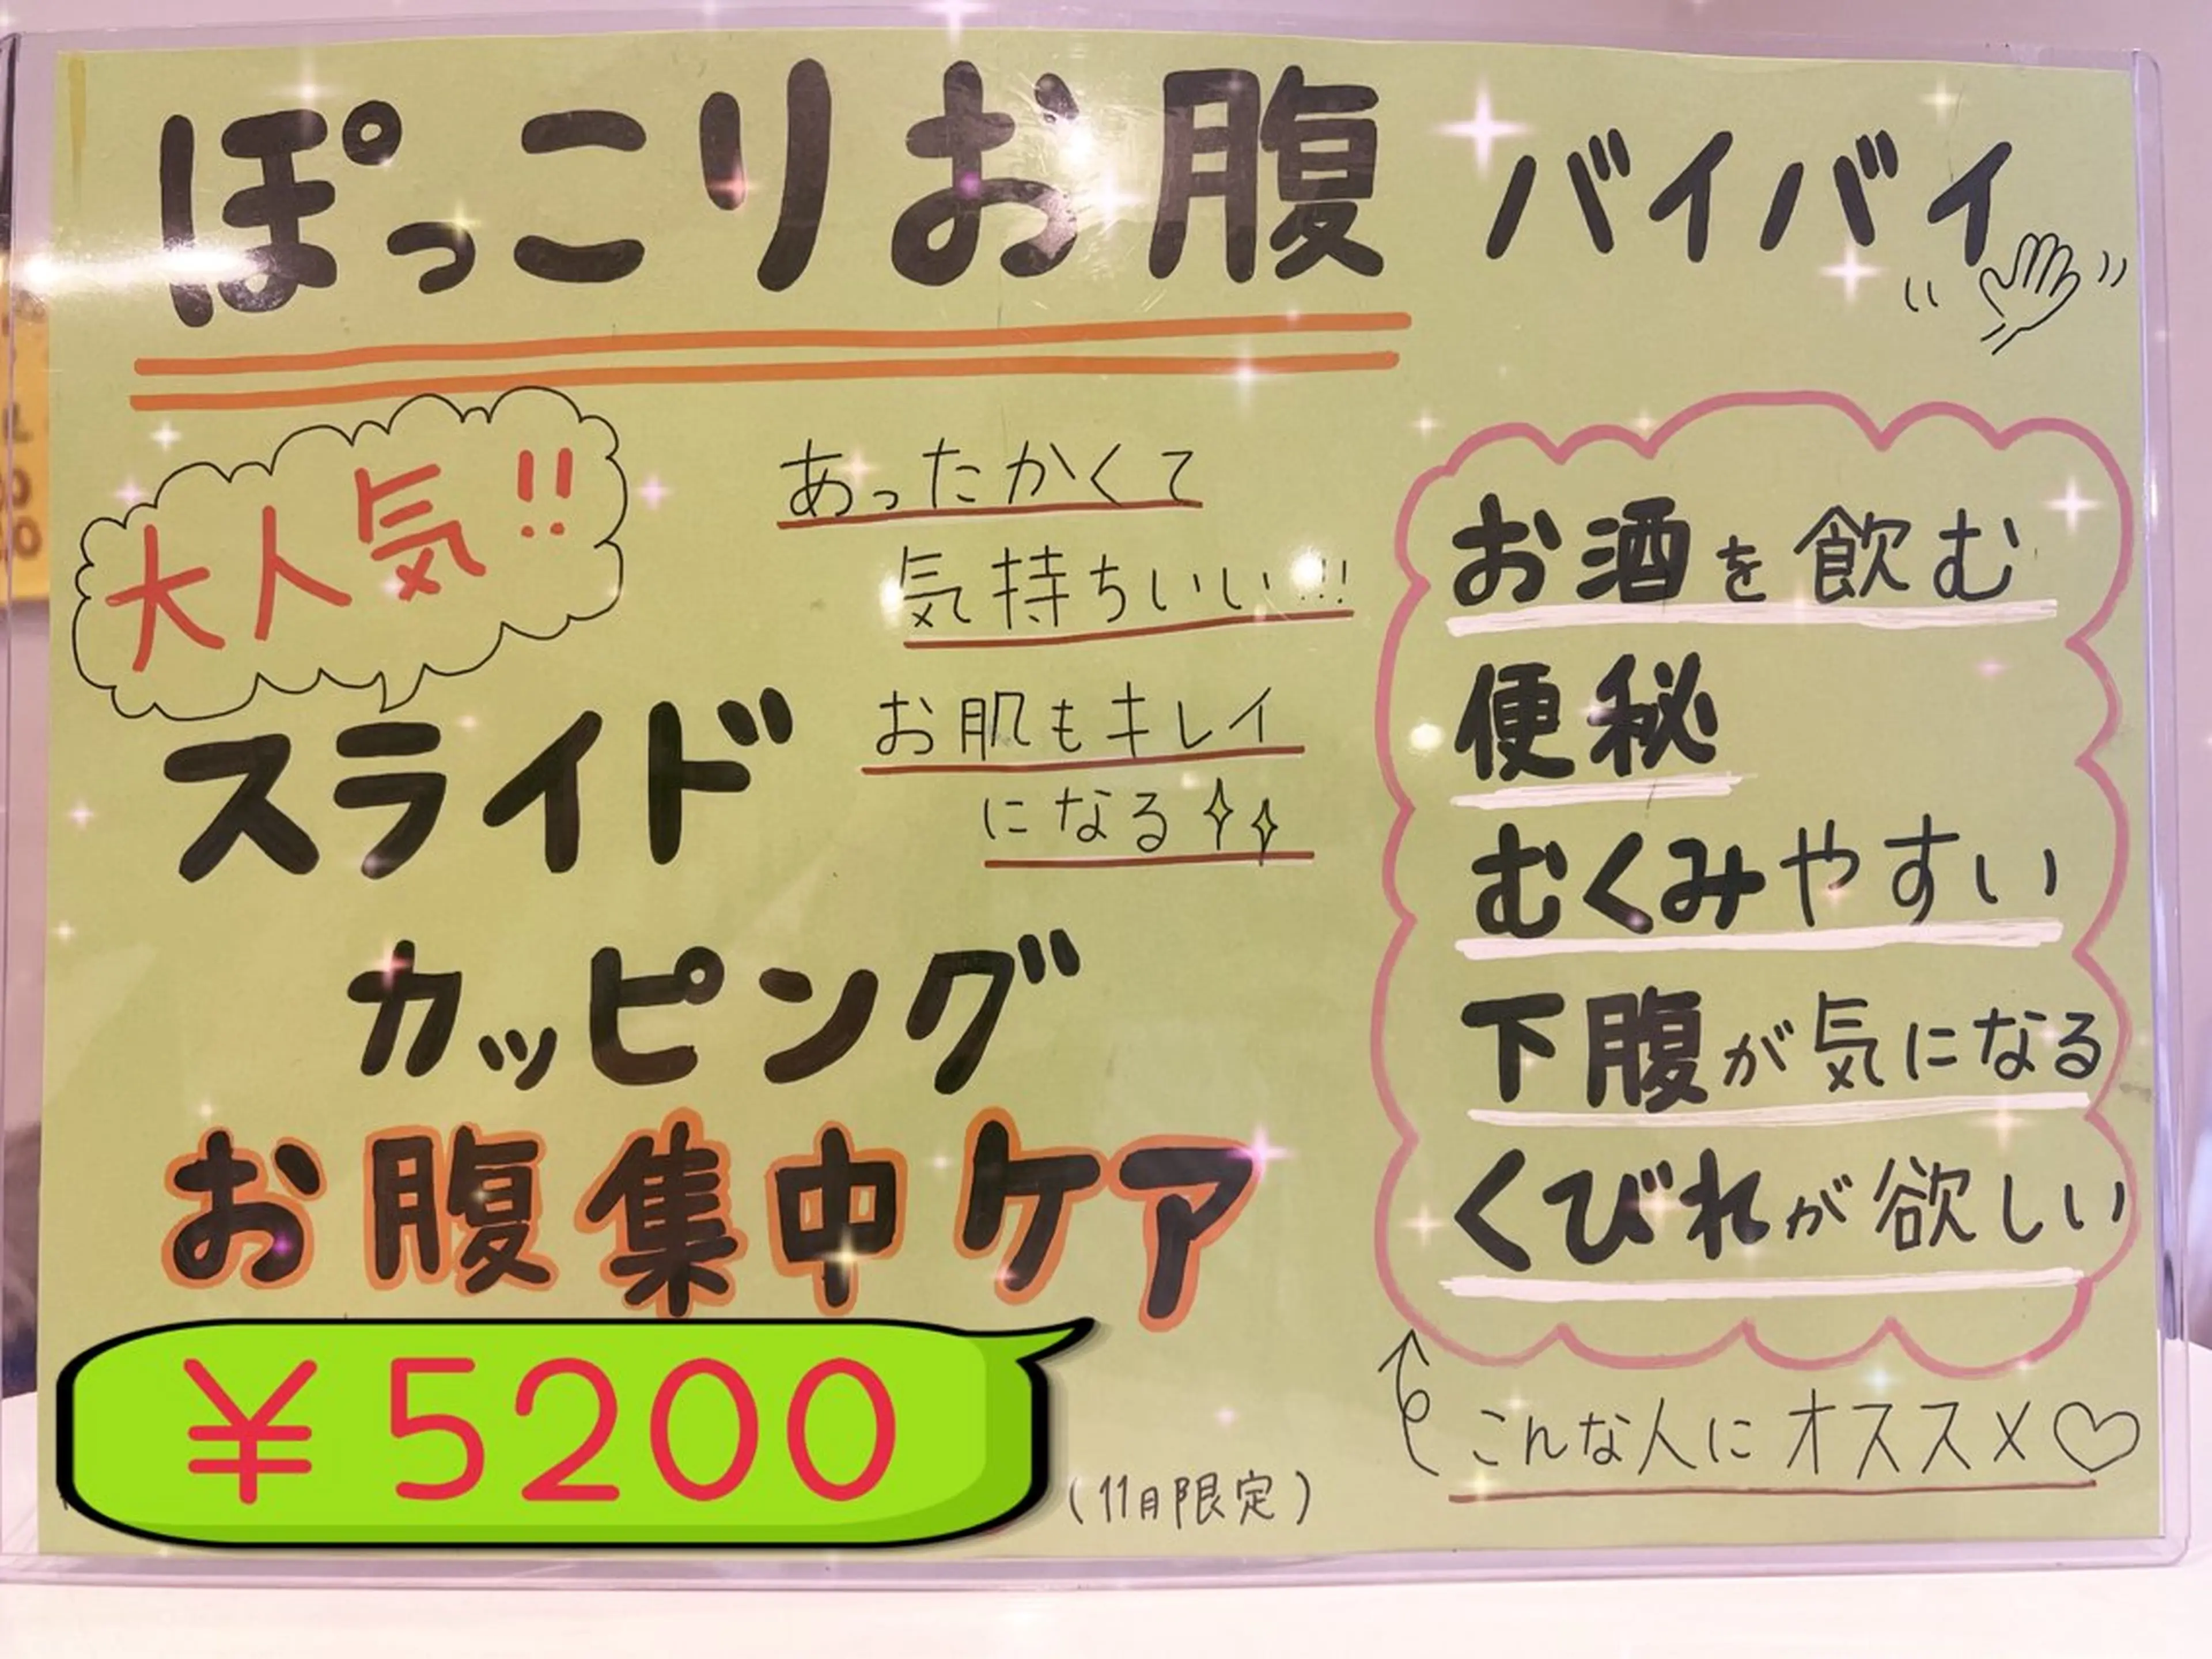 ぽっこりお腹 バイバイ
大人気!!
あったかくて
気持ちいい!!!
お肌もキレイ
になる
スライド
カッピング
お腹集中ケア
¥5200
(11月限定)
お酒を飲む
便秘
むくみやすい
下腹が気になる
くびれが欲しい
こんな人にオススメ♡